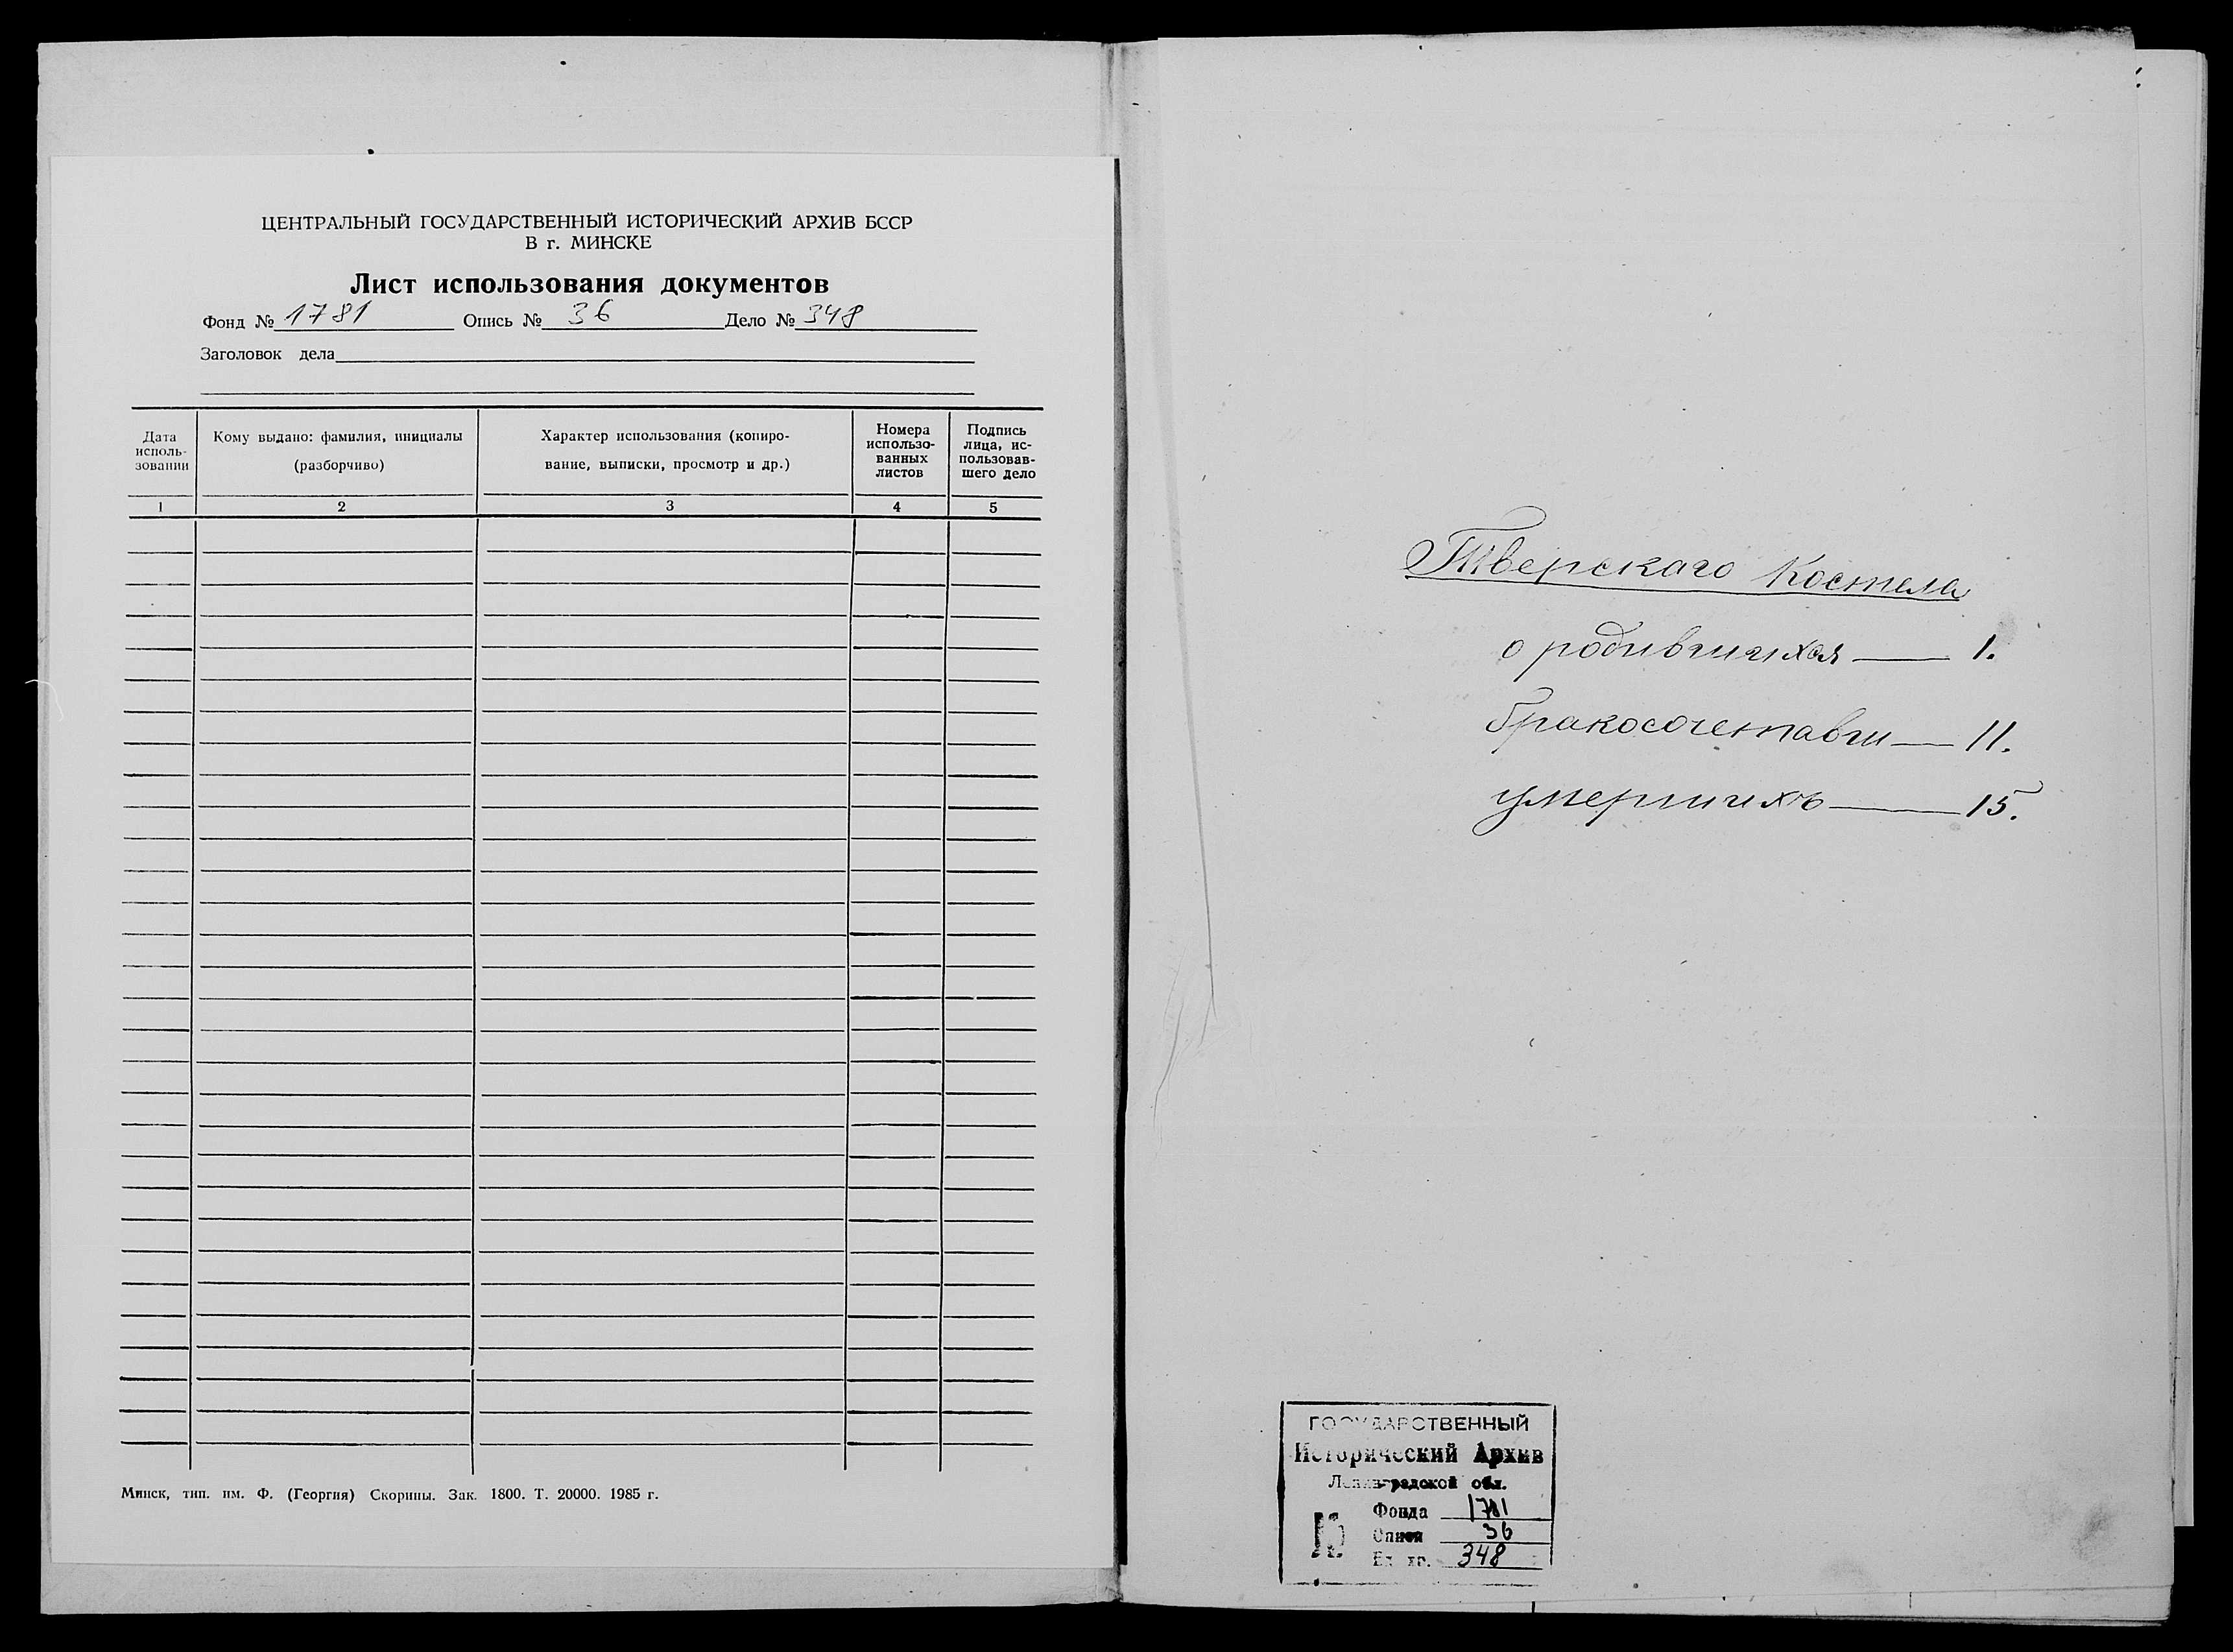 ЦЕНТРАЛЬНЫЙ ГОСУДАРСТВЕННЫЙ ИСТОРИЧЕСКИЙ АРХИВ БССР
В г. МИНСКЕ
Лист использования документов
Фонд № 1781 Опись № 36 Дело № 348
Заголовок дела
Дата исполь-зовании
Кому выдано: фамилия, инициалы (разборчиво)
Характер использования (копиро-вание, выписки, просмотр и др.)
Номера использо-ванных листов
Подпись лица, ис-пользовав-шего дело
1 2 3 4 5
Минск, тип. им. Ф. (Георгия) Скорины. Зак. 1800. Т. 20000. 1985 г.
Тверскаго Костела
о родившихся — 1.
бракосочетавши — 11.
умершихъ — 15.
ГОСУДАРСТВЕННЫЙ
Исторический Архив
Ленинградской обл.
Фонда 1781
Описи 36
Ед. хр. 348